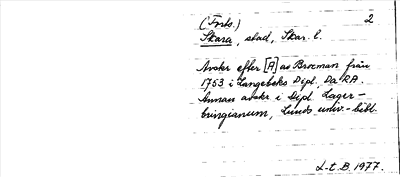 (Forts.) 2
Skara, stad, Skar. l.
Avskr efter [A] av Brocman från
1753 i Langebeks Dipl, Da RA.
Annan avskr i Dipl Lager-
bringianum, Lunds univ.-bibl.
L-t. B. 1977.